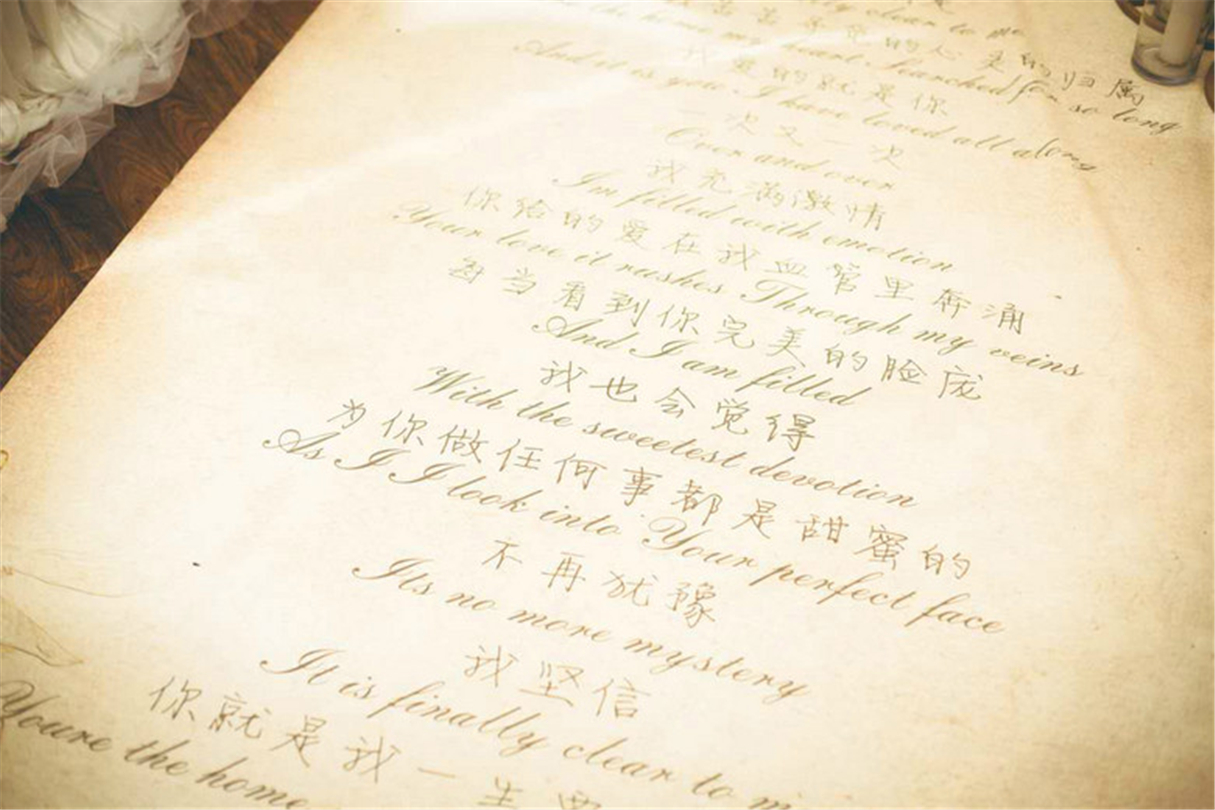 clear to me
的人 美的归属
the home my heart Searched for so long
我爱的就是你
And it is you I have loved all along
一次又一次
Over and over
我充满激情
Im filled with emotion
你给的爱在我血管里奔涌
Your love it rushes Through my veins
每当看到你完美的脸庞
And I am filled
我也会觉得
With the sweetest devotion
为你做任何事都是甜蜜的
As I I look into Your perfect face
不再犹豫
Its no more mystery
我坚信
It is finally clear to m
你就是我一生要
Youre the home